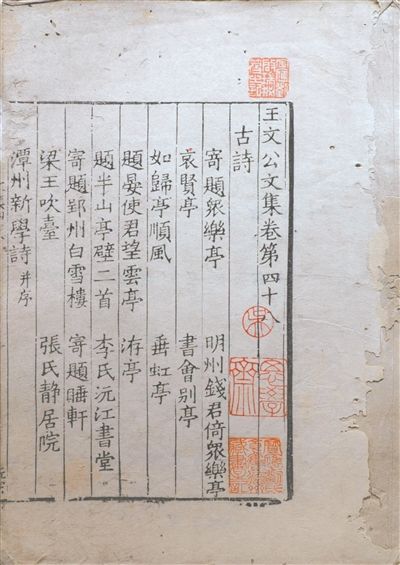 王文公文集卷第四十八
古詩
寄題衆樂亭　明州錢君倚衆樂亭
哀賢亭　書會別亭
如歸亭順風　垂虹亭
題晏使君望雲亭　洊亭
題半山亭壁二首　李氏沅江書堂
寄題郢州白雪樓　寄題睡軒
梁王吹臺　張氏静居院
潭州新學詩并序